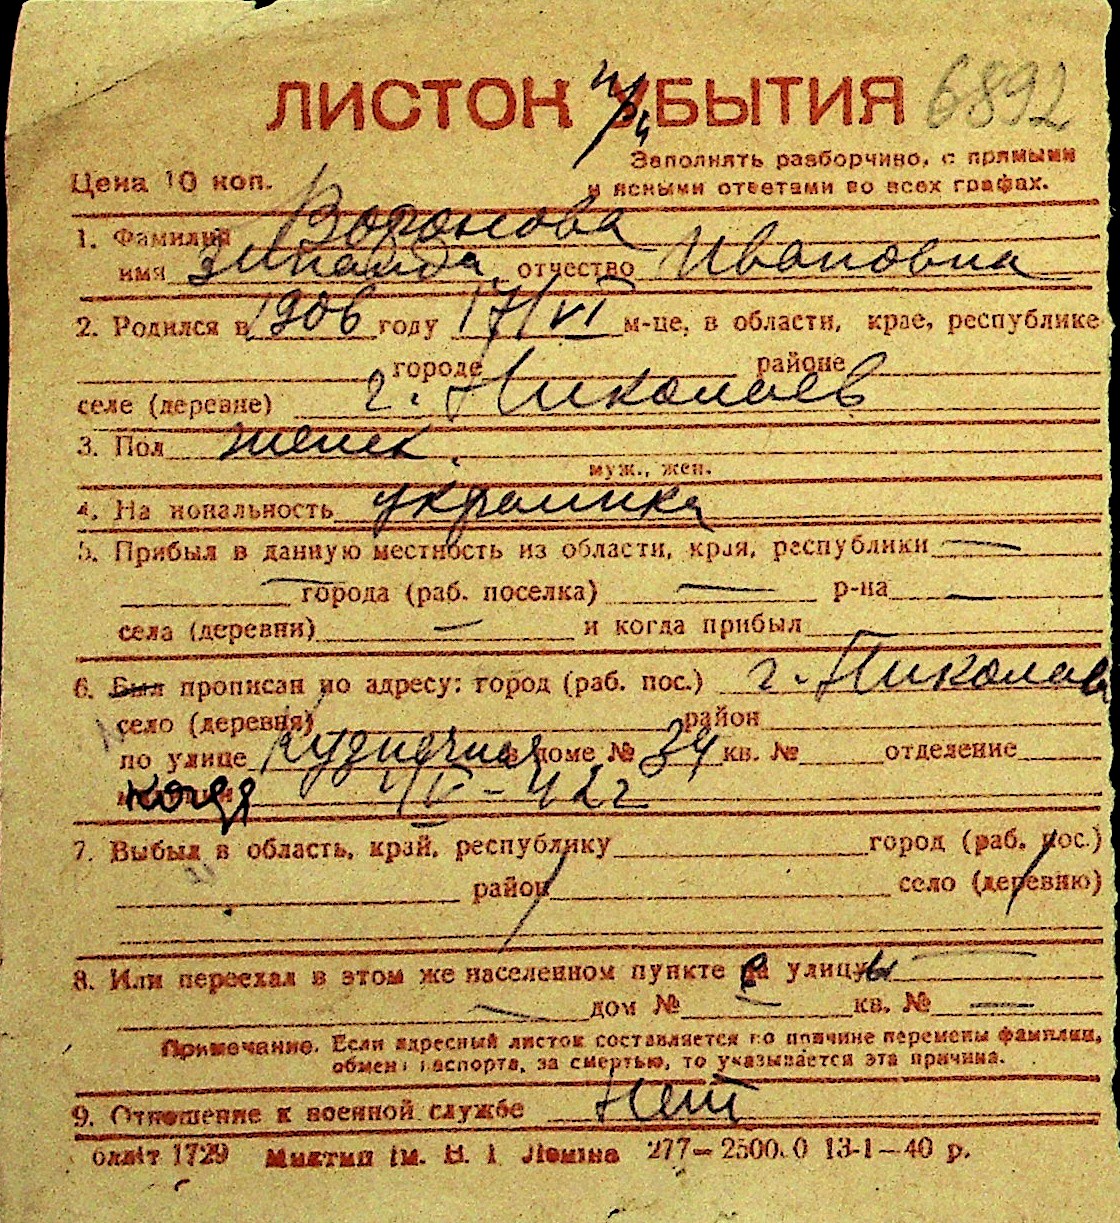 ЛИСТОН УБЫТИЯ 6892
Заполнять разборчиво, с прямыми
Цена 10 коп.
и ясными ответами во всех графах.
1. Фамилия Воронова
имя Зинаида отчество Ивановна
2. Родился в 1906 году 17/VI м-це, в области, крае, республике
городе районе
селе (деревне) г. Николаев
3. Пол женск.
муж., жен.
4. На иональность украинка
5. Прибыл в данную местность из области, края, республики —
— города (раб. поселка) — р-на —
села (деревни) — и когда прибыл
6. Был прописан по адресу: город (раб. пос.) г. Николаев
село (деревня) район
по улице Кузнечная в доме № 34 кв. № отделение
когда 1/IV-42г
7. Выбыл в область, край, республику город (раб. пос.)
район село (деревню)
8. Или переехал в этом же населенном пункте с улицы —
— дом № — кв. № —
Примечание. Если адресный листок составляется по причине перемены фамилии,
обмена паспорта, за смертью, то указывается эта причина.
9. Отношение к военной службе Нет
олліт 1729 Миктип ім. В. І Леніна 277—2500.0 13-1—40 р.